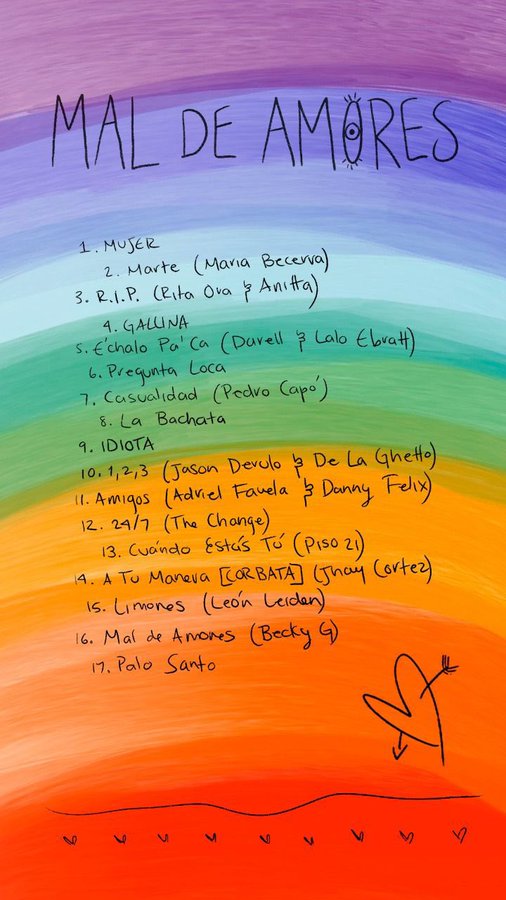 MAL DE AMORES
1. MUJER
2. Marte (Maria Becerra)
3. R.I.P. (Rita Ora & Anitta)
4. GALLINA
5. É'chalo Pa' Ca (Darell & Lalo Ebratt)
6. Pregunta Loca
7. Casualidad (Pedro Capó)
8. La Bachata
9. IDIOTA
10. 1,2,3 (Jason Derulo & De La Ghetto)
11. Amigos (Adriel Favela & Danny Felix)
12. 24/7 (The Change)
13. Cuándo Estás Tú (Piso 21)
14. A Tu Manera [CORBATA] (Jhay Cortez)
15. Limones (León Leiden)
16. Mal de Amores (Becky G)
17. Palo Santo